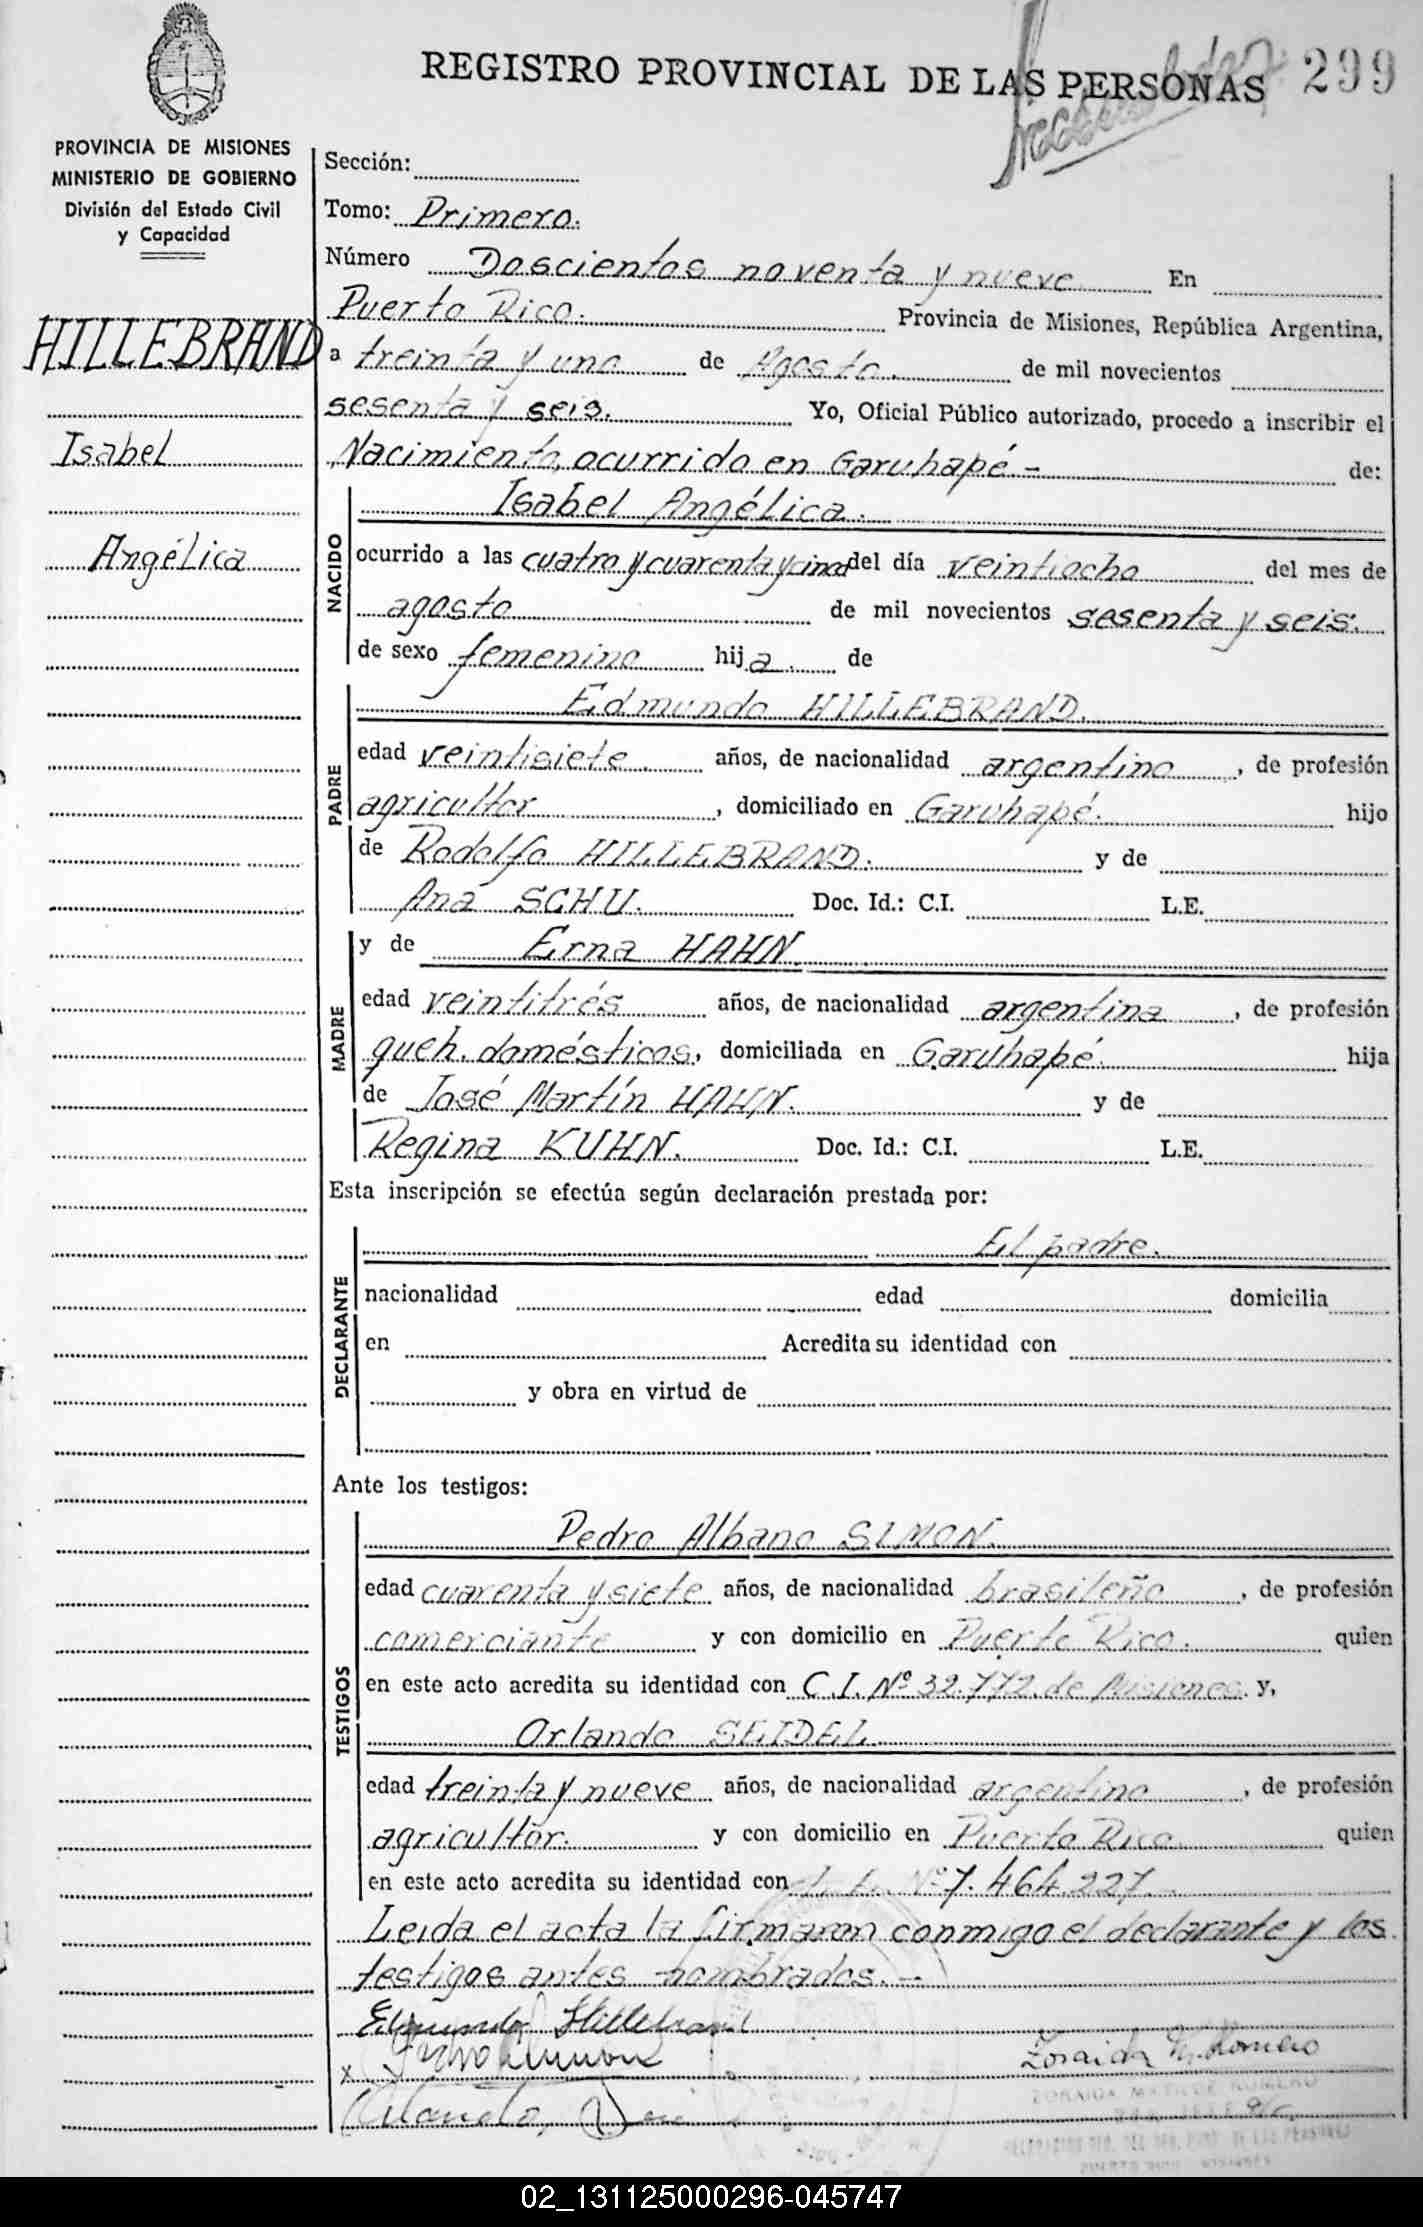 REGISTRO PROVINCIAL DE LAS PERSONAS 299
PROVINCIA DE MISIONES
MINISTERIO DE GOBIERNO
División del Estado Civil
y Capacidad
HILLEBRAND
Isabel
Angélica
Sección:
Tomo: Primero.
Número Doscientos noventa y nueve En
Puerto Rico. Provincia de Misiones, República Argentina,
a treinta y uno de Agosto. de mil novecientos
sesenta y seis. Yo, Oficial Público autorizado, procedo a inscribir el
Nacimiento, ocurrido en Garuhapé - de:
NACIDO
Isabel Angélica.
ocurrido a las cuatro y cuarenta y cinco del día veintiocho del mes de
agosto de mil novecientos sesenta y seis.
de sexo femenino hija. de
PADRE
Edmundo HILLEBRAND.
edad veintisiete. años, de nacionalidad argentino, de profesión
agricultor, domiciliado en Garuhapé. hijo
de Rodolfo HILLEBRAND. y de
Ana SCHU. Doc. Id.: C.I. L.E.
MADRE
y de Erna HAHN.
edad veintitrés años, de nacionalidad argentina, de profesión
queh. domésticos, domiciliada en Garuhapé. hija
de José Martín HAHN. y de
Regina KUHN. Doc. Id.: C.I. L.E.
Esta inscripción se efectúa según declaración prestada por:
DECLARANTE
El padre.
nacionalidad edad domicilia
en Acredita su identidad con
y obra en virtud de
Ante los testigos:
TESTIGOS
Pedro Albano SIMON.
edad cuarenta y siete años, de nacionalidad brasileño, de profesión
comerciante y con domicilio en Puerto Rico. quien
en este acto acredita su identidad con C.I. Nº 32.772. de Misiones. y,
Orlando SEIDEL
edad treinta y nueve años, de nacionalidad argentino, de profesión
agricultor. y con domicilio en Puerto Rico quien
en este acto acredita su identidad con L.E. Nº 7.464.227.
Leida el acta la firmaron conmigo el declarante y los
testigos antes nombrados. -
Edmundo Hillebrand
x
Orlando
Zoraida M. Romero
ZORAIDA MATILDE ROMERO
PUERTO RICO - MISIONES
02_131125000296-045747